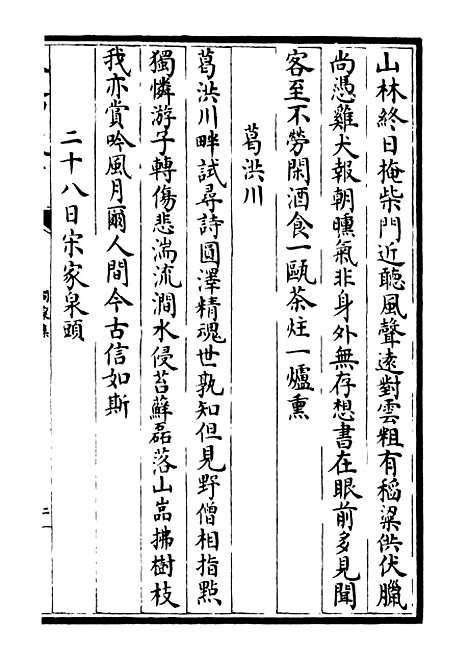 山林終日掩柴門近聽風聲遠對雲粗有稻粱供伏臘
尚憑雞犬報朝曛氣非身外無存想書在眼前多見聞
客至不勞閑酒食一甌茶炷一爐熏
葛洪川
葛洪川畔試尋詩圓澤精魂世孰知但見野僧相指點
獨憐游子轉傷悲湍流澗水侵苔蘚磊落山嵓拂樹枝
我亦賞吟風月爾人間今古信如斯
二十八日宋家泉頭